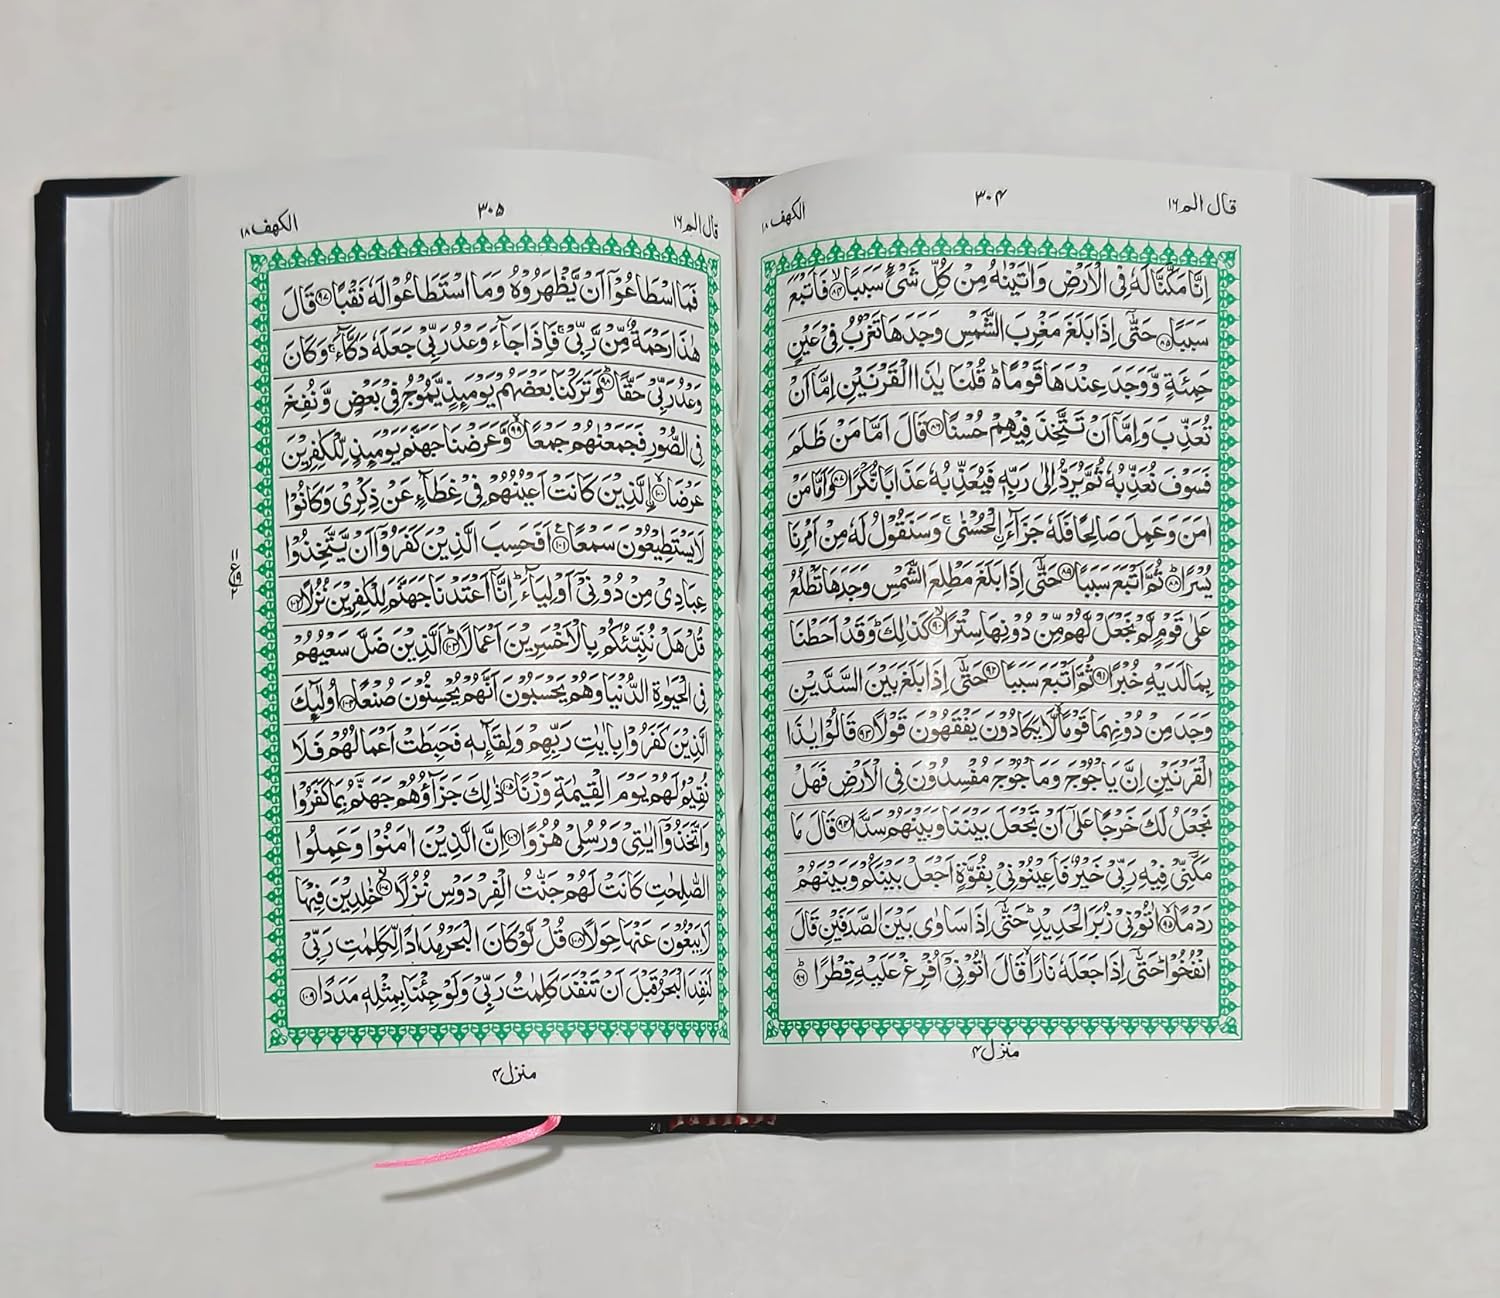 قال الم ١٦
٣٠٤
الكهف ١٨
اِنَّا مَكَّنَّا لَهٗ فِی الْاَرْضِ وَاٰتَیْنٰهُ مِنْ كُلِّ شَیْءٍ سَبَبًا ۙ﴿۸۴﴾ فَاَتْبَعَ
سَبَبًا ﴿۸۵﴾ حَتّٰۤی اِذَا بَلَغَ مَغْرِبَ الشَّمْسِ وَجَدَهَا تَغْرُبُ فِیْ عَیْنٍ
حَمِئَةٍ وَّوَجَدَ عِنْدَهَا قَوْمًا ؕ۬ قُلْنَا یٰذَا الْقَرْنَیْنِ اِمَّاۤ اَنْ
تُعَذِّبَ وَاِمَّاۤ اَنْ تَتَّخِذَ فِیْهِمْ حُسْنًا ﴿۸۶﴾ قَالَ اَمَّا مَنْ ظَلَمَ
فَسَوْفَ نُعَذِّبُهٗ ثُمَّ یُرَدُّ اِلٰی رَبِّهٖ فَیُعَذِّبُهٗ عَذَابًا نُّكْرًا ﴿۸۷﴾ وَاَمَّا مَنْ
اٰمَنَ وَعَمِلَ صَالِحًا فَلَهٗ جَزَآءَ ۨالْحُسْنٰی ۚ وَسَنَقُوْلُ لَهٗ مِنْ اَمْرِنَا
یُسْرًا ؕ﴿۸۸﴾ ثُمَّ اَتْبَعَ سَبَبًا ﴿۸۹﴾ حَتّٰۤی اِذَا بَلَغَ مَطْلِعَ الشَّمْسِ وَجَدَهَا تَطْلُعُ
عَلٰی قَوْمٍ لَّمْ نَجْعَلْ لَّهُمْ مِّنْ دُوْنِهَا سِتْرًا ۙ﴿۹۰﴾ كَذٰلِكَ ؕ وَقَدْ اَحَطْنَا
بِمَا لَدَیْهِ خُبْرًا ﴿۹۱﴾ ثُمَّ اَتْبَعَ سَبَبًا ﴿۹۲﴾ حَتّٰۤی اِذَا بَلَغَ بَیْنَ السَّدَّیْنِ
وَجَدَ مِنْ دُوْنِهِمَا قَوْمًا ۙ لَّا یَكَادُوْنَ یَفْقَهُوْنَ قَوْلًا ﴿۹۳﴾ قَالُوْا یٰذَا
الْقَرْنَیْنِ اِنَّ یَاْجُوْجَ وَمَاْجُوْجَ مُفْسِدُوْنَ فِی الْاَرْضِ فَهَلْ
نَجْعَلُ لَكَ خَرْجًا عَلٰۤی اَنْ تَجْعَلَ بَیْنَنَا وَبَیْنَهُمْ سَدًّا ﴿۹۴﴾ قَالَ مَا
مَكَّنِّیْ فِیْهِ رَبِّیْ خَیْرٌ فَاَعِیْنُوْنِیْ بِقُوَّةٍ اَجْعَلْ بَیْنَكُمْ وَبَیْنَهُمْ
رَدْمًا ۙ﴿۹۵﴾ اٰتُوْنِیْ زُبَرَ الْحَدِیْدِ ؕ حَتّٰۤی اِذَا سَاوٰی بَیْنَ الصَّدَفَیْنِ قَالَ
انْفُخُوْا ؕ حَتّٰۤی اِذَا جَعَلَهٗ نَارًا ۙ قَالَ اٰتُوْنِیْۤ اُفْرِغْ عَلَیْهِ قِطْرًا ؕ﴿۹۶﴾
منزل ۴
قال الم ١٦
٣٠۵
الكهف ١٨
فَمَا اسْطَاعُوْۤا اَنْ یَّظْهَرُوْهُ وَمَا اسْتَطَاعُوْا لَهٗ نَقْبًا ﴿۹۷﴾ قَالَ
هٰذَا رَحْمَةٌ مِّنْ رَّبِّیْ ۚ فَاِذَا جَآءَ وَعْدُ رَبِّیْ جَعَلَهٗ دَكَّآءَ ۚ وَكَانَ
وَعْدُ رَبِّیْ حَقًّا ؕ﴿۹۸﴾ وَتَرَكْنَا بَعْضَهُمْ یَوْمَىِٕذٍ یَّمُوْجُ فِیْ بَعْضٍ وَّنُفِخَ
فِی الصُّوْرِ فَجَمَعْنٰهُمْ جَمْعًا ۙ﴿۹۹﴾ وَّعَرَضْنَا جَهَنَّمَ یَوْمَىِٕذٍ لِّلْكٰفِرِیْنَ
عَرْضَا ۙ﴿۱۰۰﴾ ۨالَّذِیْنَ كَانَتْ اَعْیُنُهُمْ فِیْ غِطَآءٍ عَنْ ذِكْرِیْ وَكَانُوْا
لَا یَسْتَطِیْعُوْنَ سَمْعًا ﴿۱۰۱﴾ اَفَحَسِبَ الَّذِیْنَ كَفَرُوْۤا اَنْ یَّتَّخِذُوْا
عِبَادِیْ مِنْ دُوْنِیْۤ اَوْلِیَآءَ ؕ اِنَّاۤ اَعْتَدْنَا جَهَنَّمَ لِلْكٰفِرِیْنَ نُزُلًا ﴿۱۰۲﴾
قُلْ هَلْ نُنَبِّئُكُمْ بِالْاَخْسَرِیْنَ اَعْمَالًا ؕ﴿۱۰۳﴾ اَلَّذِیْنَ ضَلَّ سَعْیُهُمْ
فِی الْحَیٰوةِ الدُّنْیَا وَهُمْ یَحْسَبُوْنَ اَنَّهُمْ یُحْسِنُوْنَ صُنْعًا ﴿۱۰۴﴾ اُولٰٓىِٕكَ
الَّذِیْنَ كَفَرُوْا بِاٰیٰتِ رَبِّهِمْ وَلِقَآىِٕهٖ فَحَبِطَتْ اَعْمَالُهُمْ فَلَا
نُقِیْمُ لَهُمْ یَوْمَ الْقِیٰمَةِ وَزْنًا ﴿۱۰۵﴾ ذٰلِكَ جَزَآؤُهُمْ جَهَنَّمُ بِمَا كَفَرُوْا
وَاتَّخَذُوْۤا اٰیٰتِیْ وَرُسُلِیْ هُزُوًا ﴿۱۰۶﴾ اِنَّ الَّذِیْنَ اٰمَنُوْا وَعَمِلُوا
الصّٰلِحٰتِ كَانَتْ لَهُمْ جَنّٰتُ الْفِرْدَوْسِ نُزُلًا ۙ﴿۱۰۷﴾ خٰلِدِیْنَ فِیْهَا
لَا یَبْغُوْنَ عَنْهَا حِوَلًا ﴿۱۰۸﴾ قُلْ لَّوْ كَانَ الْبَحْرُ مِدَادًا لِّكَلِمٰتِ رَبِّیْ
لَنَفِدَ الْبَحْرُ قَبْلَ اَنْ تَنْفَدَ كَلِمٰتُ رَبِّیْ وَلَوْ جِئْنَا بِمِثْلِهٖ مَدَدًا ﴿۱۰۹﴾
منزل ۴